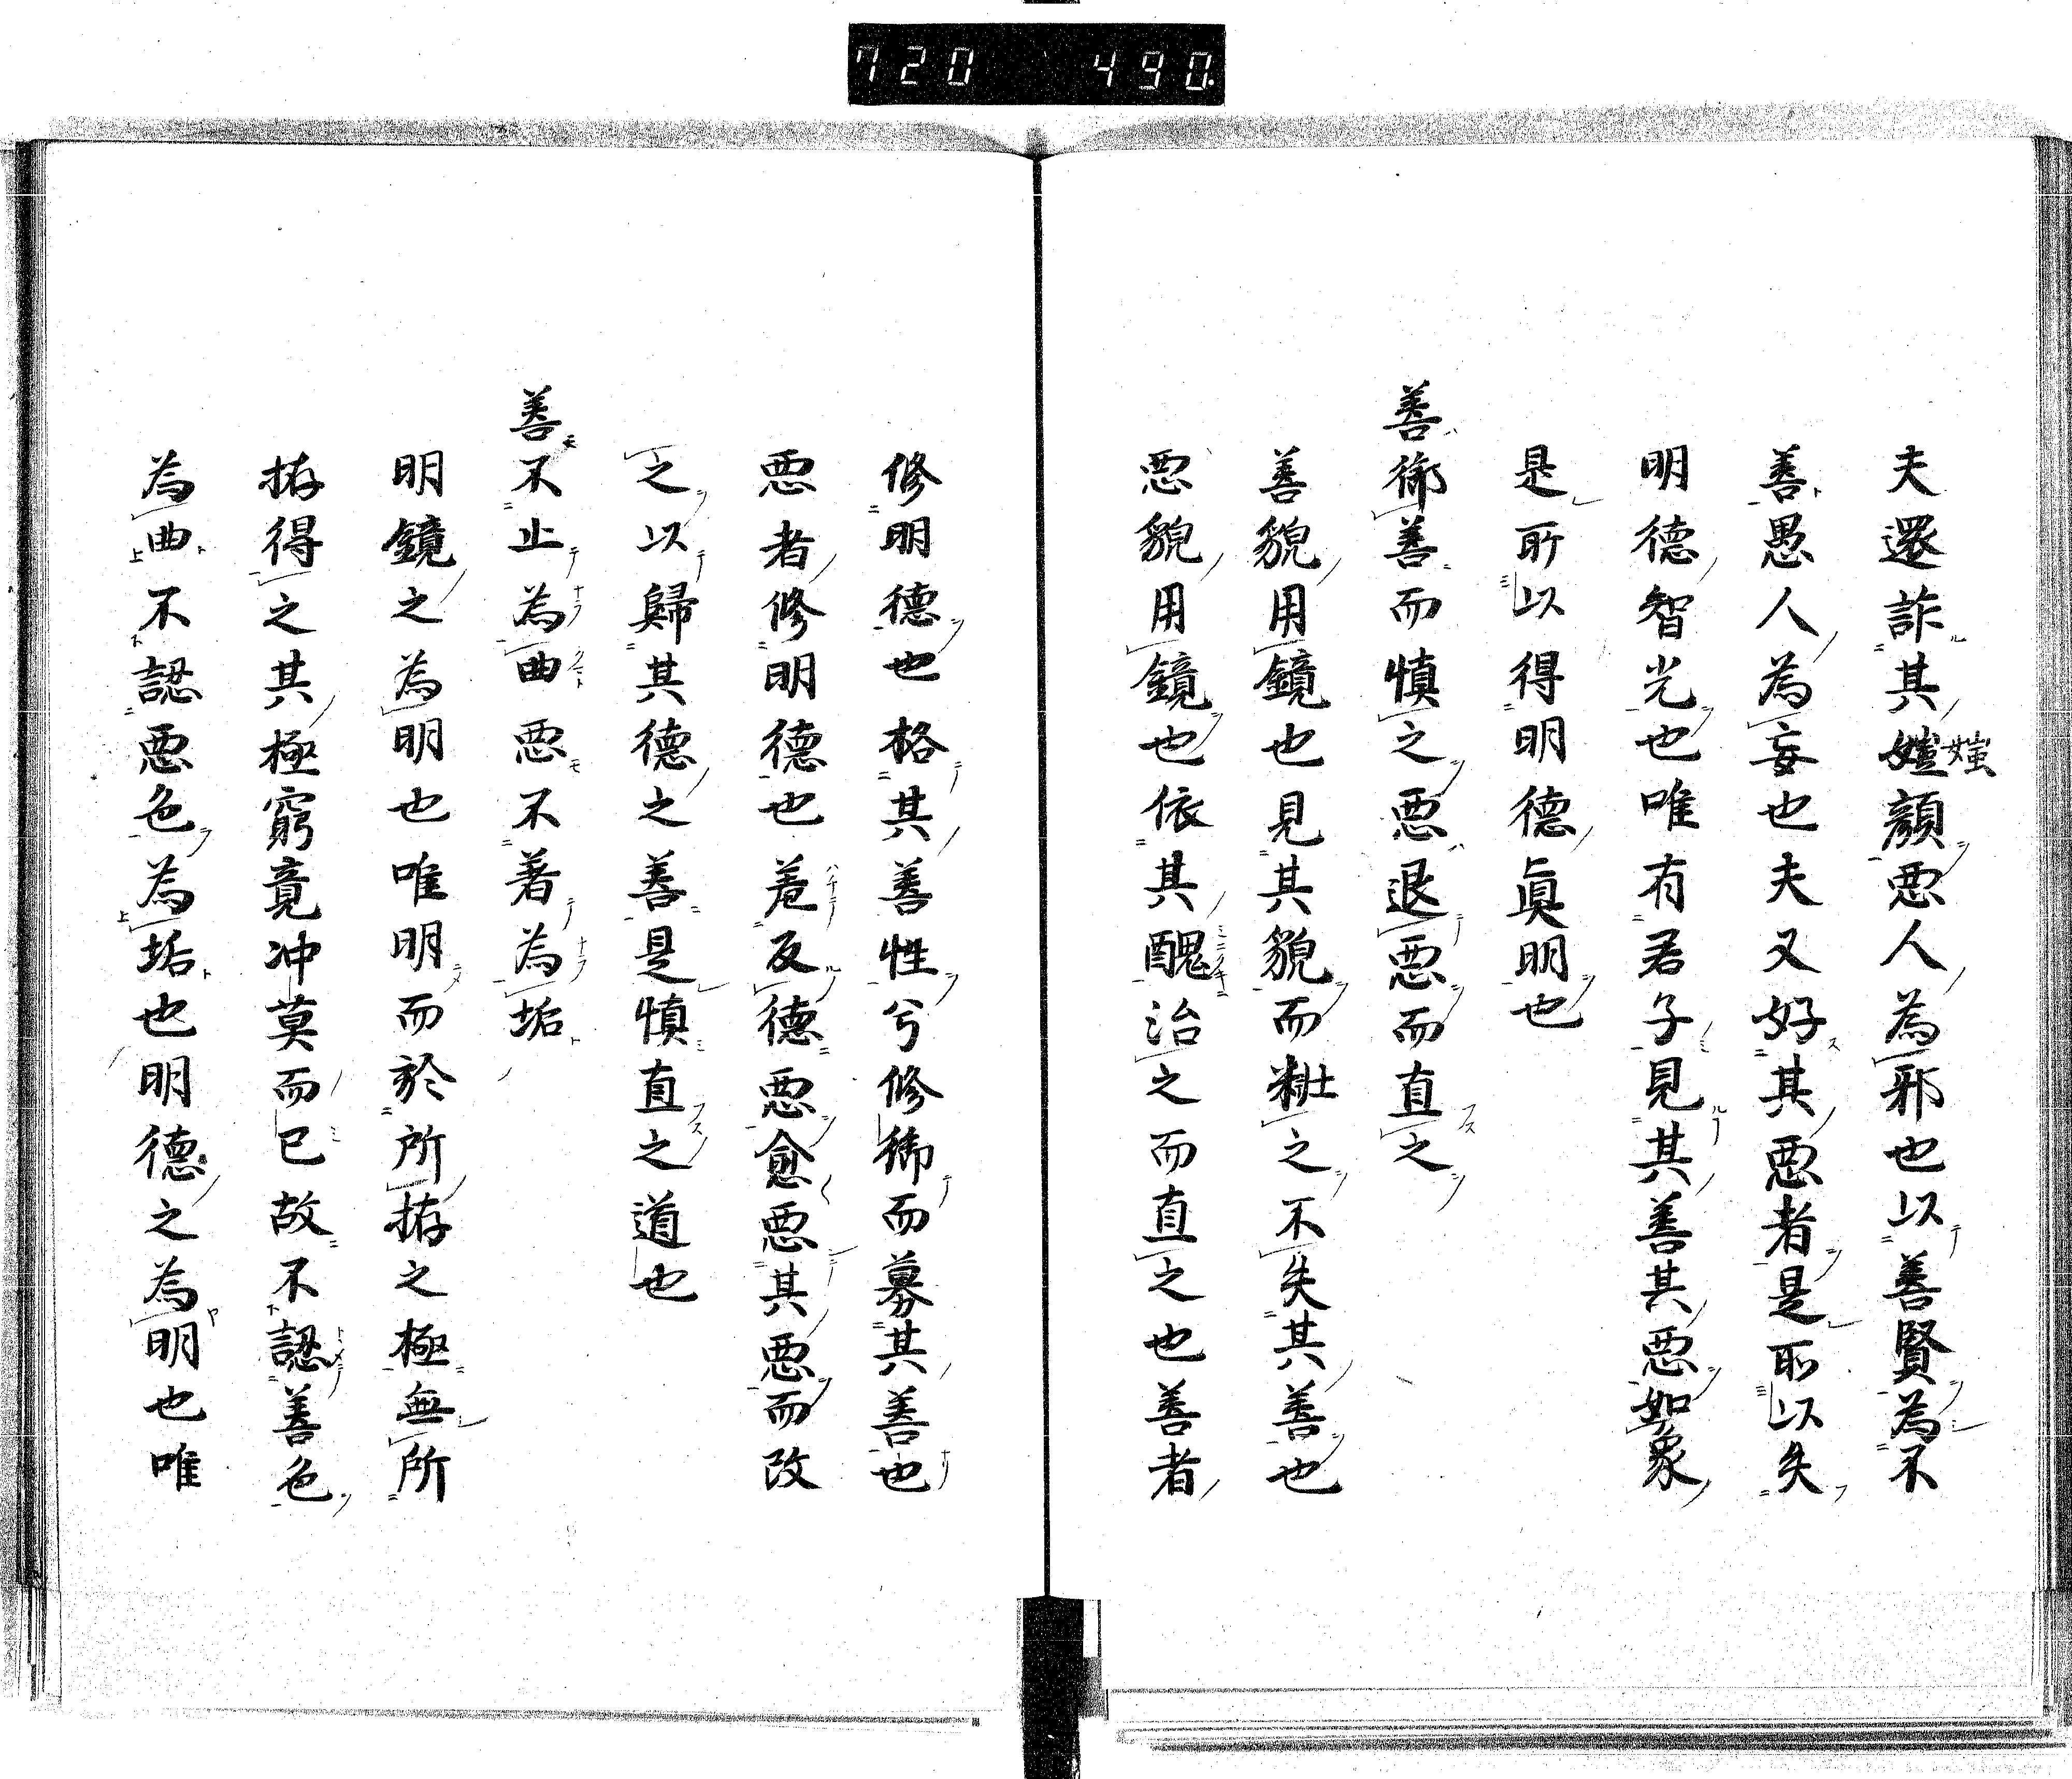 720 490
夫還詐其媸顔悪人為邪也以善賢為不
媸
善愚人為妄也夫又好其悪者是所以失
明德智光也唯有君子見其善其悪如象
是所以得明德眞明也
善御善而慎之悪退悪而直之
善貌用鏡也見其貌而粧之不失其善也
悪貌用鏡也依其醜治之而直之也善者
修明德也格其善性兮修御而募其善也
悪者修明德也羞反德悪愈悪其悪而改
之以歸其德之善是慎直之道也
善不止為曲悪不著為垢
明鏡之為明也唯明而於所拵之極無所
拵得之其極窮竟冲莫而已故不認善色
為曲不認悪色為垢也明德之為明也唯